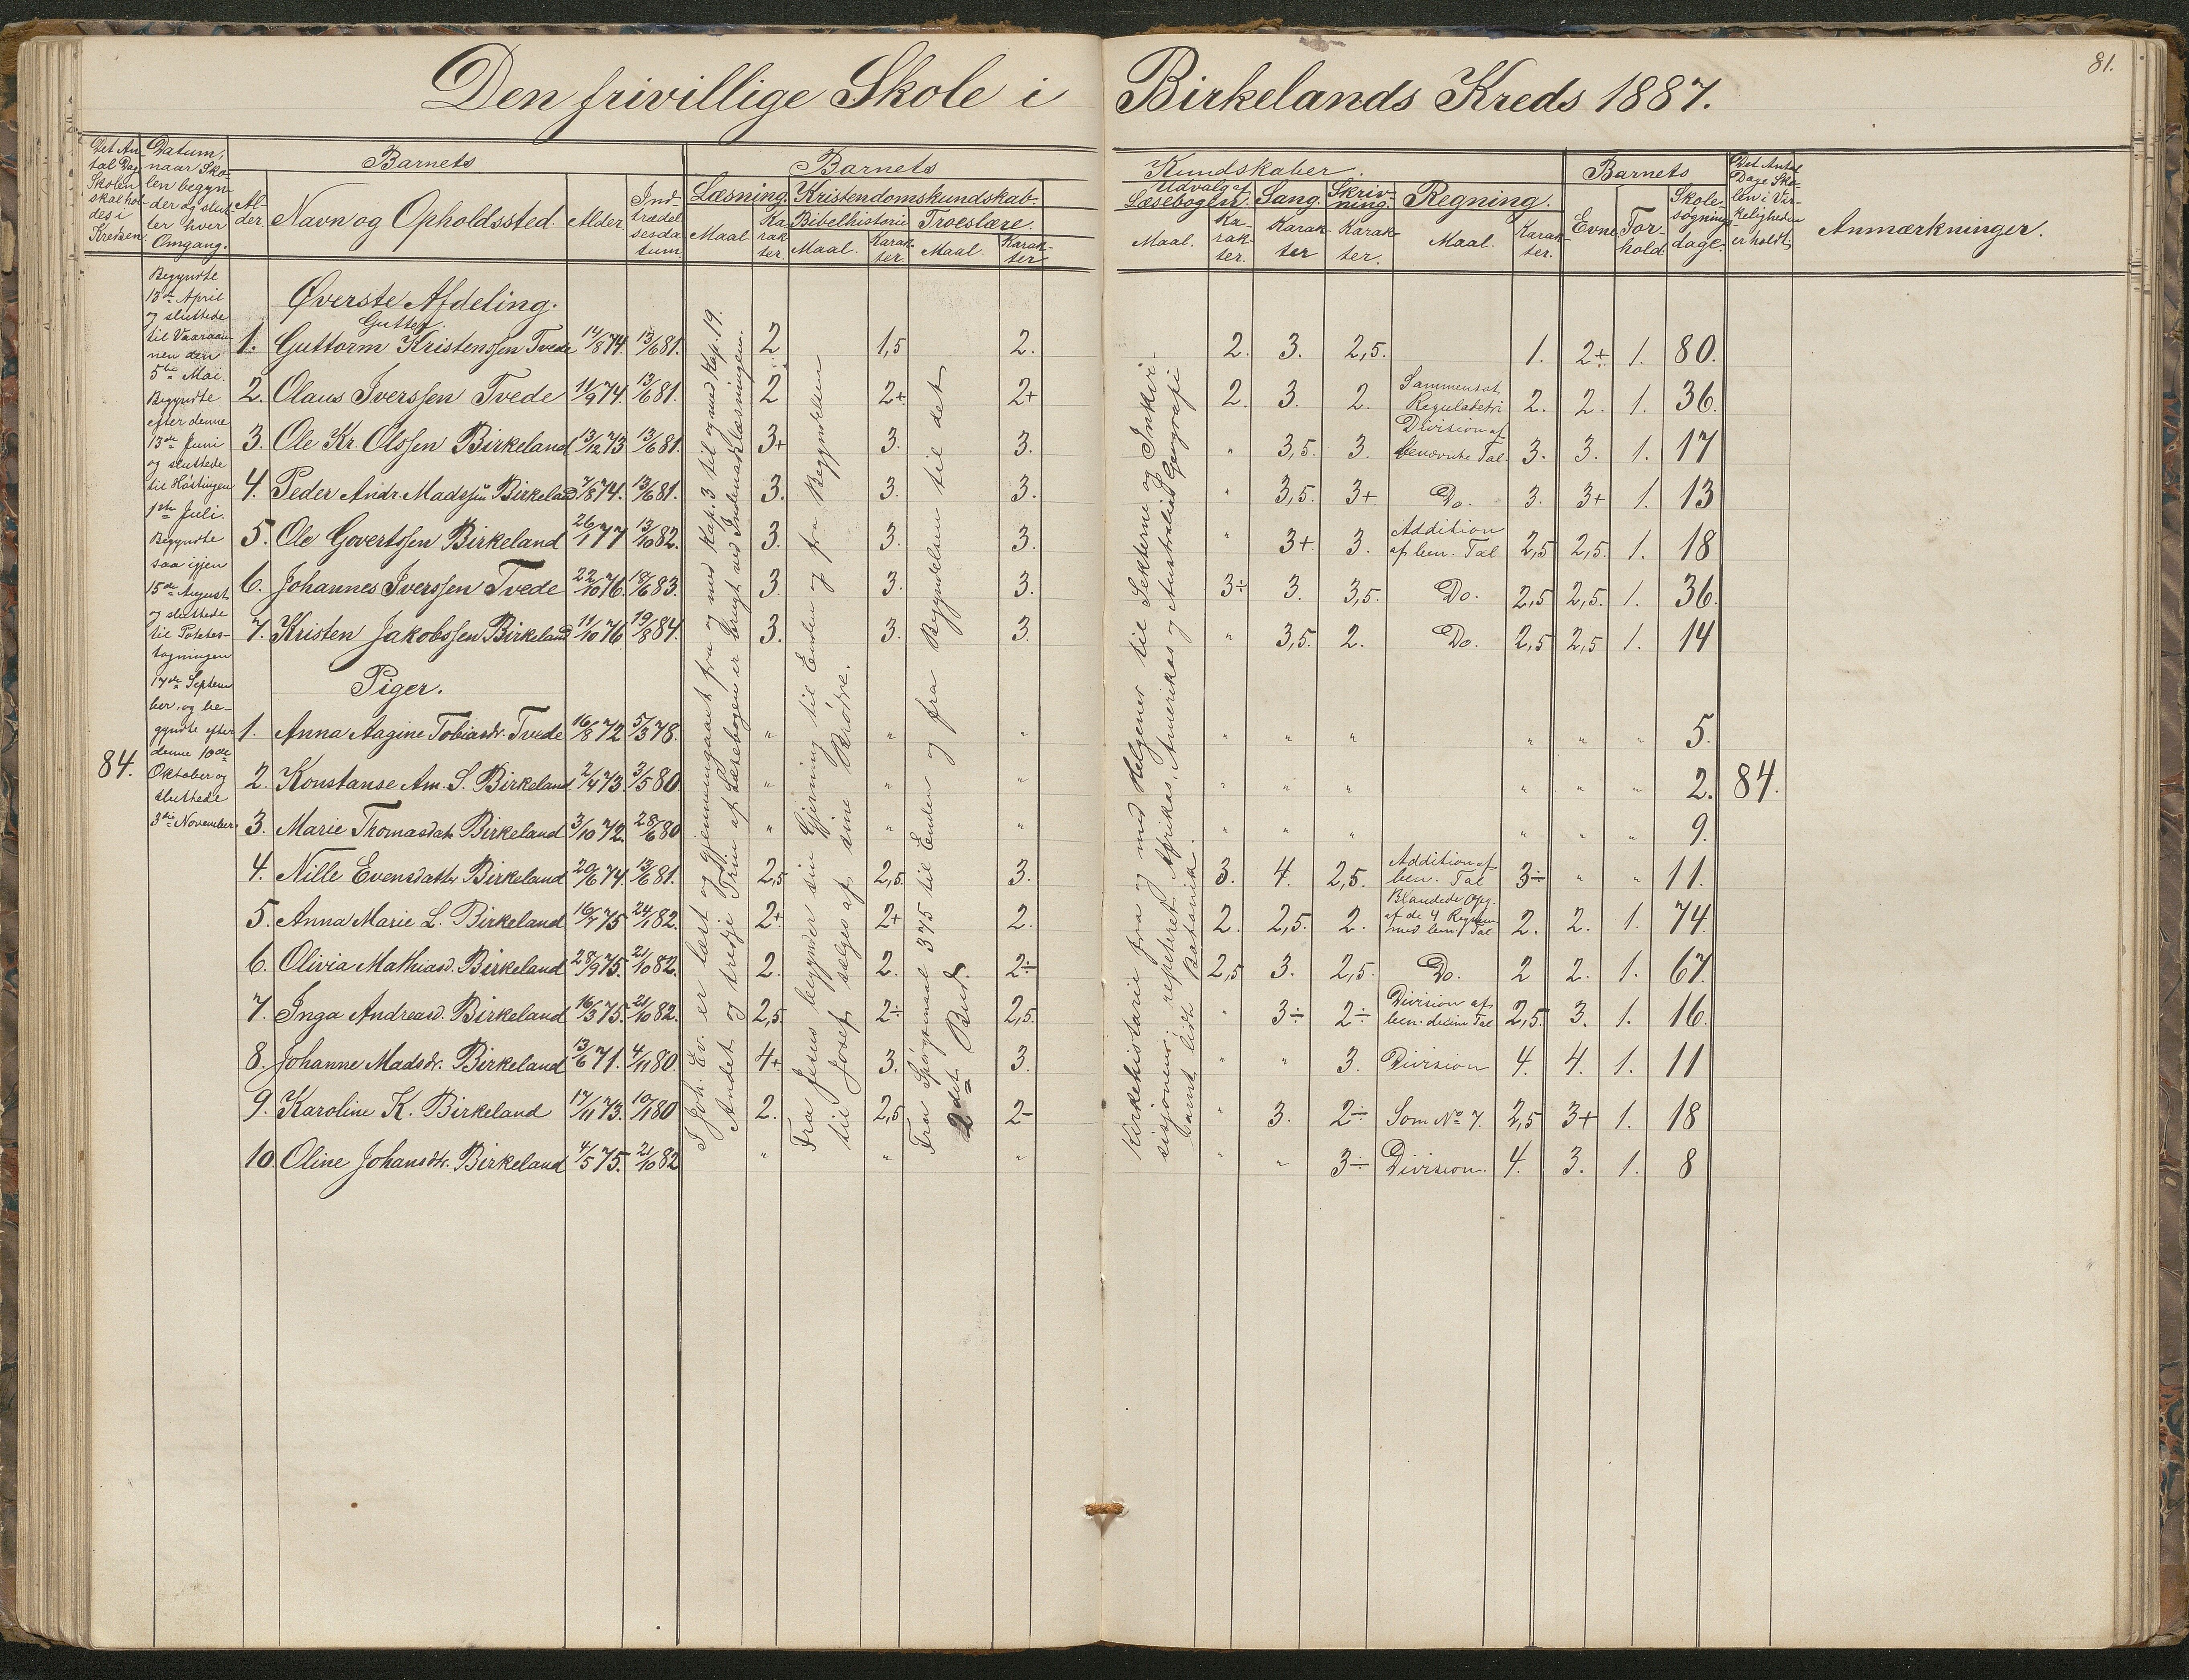 Den frivillige Skole i Birkelands Kreds 1887.
81.
Det An-
tal Dage
Skolen
skal hol-
des i
Kredsen.
Datum,
naar Sko-
len begyn-
der og slut-
ter hver
Omgang.
Barnets
Al-
der.
Navn og Opholdssted.
Alder.
Ind-
trædel-
sesda-
tum.
Barnets
Læsning. Kristendomskundskab.
Bibelhistorie Troeslære.
Maal. Ka-
rak-
ter.
Maal. Karak-
ter.
Maal. Karak-
ter
Kundskaber.
Udvalg af
Læsebogen. Sang. Skriv-
ning. Regning.
Maal. Ka-
rak-
ter.
Karak-
ter
Karak-
ter.
Maal. Karak-
ter.
Barnets
Evne. For-
hold
Skole-
søgnings-
dage.
Det Antal
Dage Sko-
len i Vir-
keligheden
er holdt.
Anmærkninger.
84.
Begyndte
13de April
og sluttede
til Vaaraan-
nen den
5te Mai.
Begyndte
efter denne
13de Juni
og sluttede
til Høstingen
1ste Juli.
Begyndte
saa igjen
15de August
og sluttede
til Potetes-
tagningen
17de Septem-
ber, og be-
gyndte efter
denne 10de
Oktober og
sluttede
3die November.
Øverste Afdeling.
Gutter.
1. Guttorm Kristenssen Tvede 14/8 74. 13/6 81. 2 1,5 2. 2. 3. 2,5. 1. 2+ 1. 80.
2. Olaus Iverssen Tvede 11/9 74. 13/6 81. 2 2+ 2+ 2. 3. 2. Sammensat
Reguladetri 2. 2. 1. 36.
3. Ole Kr. Olssen Birkeland 13/12 73 13/6 81. 3+ 3. 3. " 3,5. 3. Division af
benævnte Tal. 3. 3. 1. 17
4. Peder Andr. Madssøn Birkeland 7/8 74. 13/6 81. 3. 3. 3. " 3,5. 3+ Do. 3. 3+ 1. 13
5. Ole Govertssen Birkeland 26/1 77 13/10 82. 3. 3. 3. " 3+ 3. Addition
af ben. Tal 2,5 2,5. 1. 18
6. Johannes Iverssen Tvede 22/10 76. 18/6 83. 3. 3. 3. 3÷ 3. 3,5. Do. 2,5 2,5. 1. 36.
7. Kristen Jakobssen Birkeland 11/10 76 19/8 84. 3. 3. 3. " 3,5. 2. Do. 2,5 2,5 1. 14
Piger.
1. Anna Aagine Tobiasdr. Tvede 16/8 72 5/3 78. " " " " " " " " " 5.
2. Konstanse Am. S. Birkeland 2/4 73. 3/5 80. " " " " " " " " " 2. 84.
3. Marie Thomasdatr. Birkeland 3/10 72. 28/6 80 " " " " " " " " " 9.
4. Nille Evensdatter Birkeland 20/6 74. 13/6 81. 2,5 2,5. 3. 3. 4. 2,5. Addition af
ben. Tal 3÷ " " 11.
5. Anna Marie L. Birkeland 16/7 75 24/1 82. 2+ 2+ 2. 2. 2,5. 2. Blandede Opg.
af de 4 Regnem.
med ben. Tal 2. 2. 1. 74.
6. Olivia Mathiasd. Birkeland 28/9 75. 21/10 82. 2. 2. 2÷ 2,5 3. 2,5. Do. 2 2. 1. 67.
7. Inga Andreasd. Birkeland 16/3 75. 21/10 82. 2,5. 2÷ 2,5. " 3÷ 2÷ Division af
ben. decim Tal 2,5. 3. 1. 16.
8. Johanne Madsdr. Birkeland 13/6 71. 4/11 80. 4+ 3. 3. " " 3. Division 4. 4. 1. 11
9. Karoline K. Birkeland 17/11 73. 10/1 80 2. 2,5 2- " 3. 2÷ Som No 7. 2,5 3+ 1. 18
10. Oline Johansdtr. Birkeland 4/5 75. 21/10 82 " " " " " 3÷ Division. 4. 3. 1. 8
I Joh. Ev. er læst og gjennemgaaet fra og med Kap. 3 til og med Kap. 19.
Andet og tredje Trin af Læsebogen er brugt ved Indenadslæsningen.
Fra Jesus begynder sin Gjerning til Enden og fra Begyndelsen
til Josef sælges af sine Brødre.
Fra Spørgsmaal 375 til Enden og fra Begyndelsen til det
2det Bud.
Kirkehistorie fra og med Helgener til Sekterne og Inkvi-
sisjonen; repeteret Afrikas, Amerikas og Australias Geografi
samt lidt Botanik.